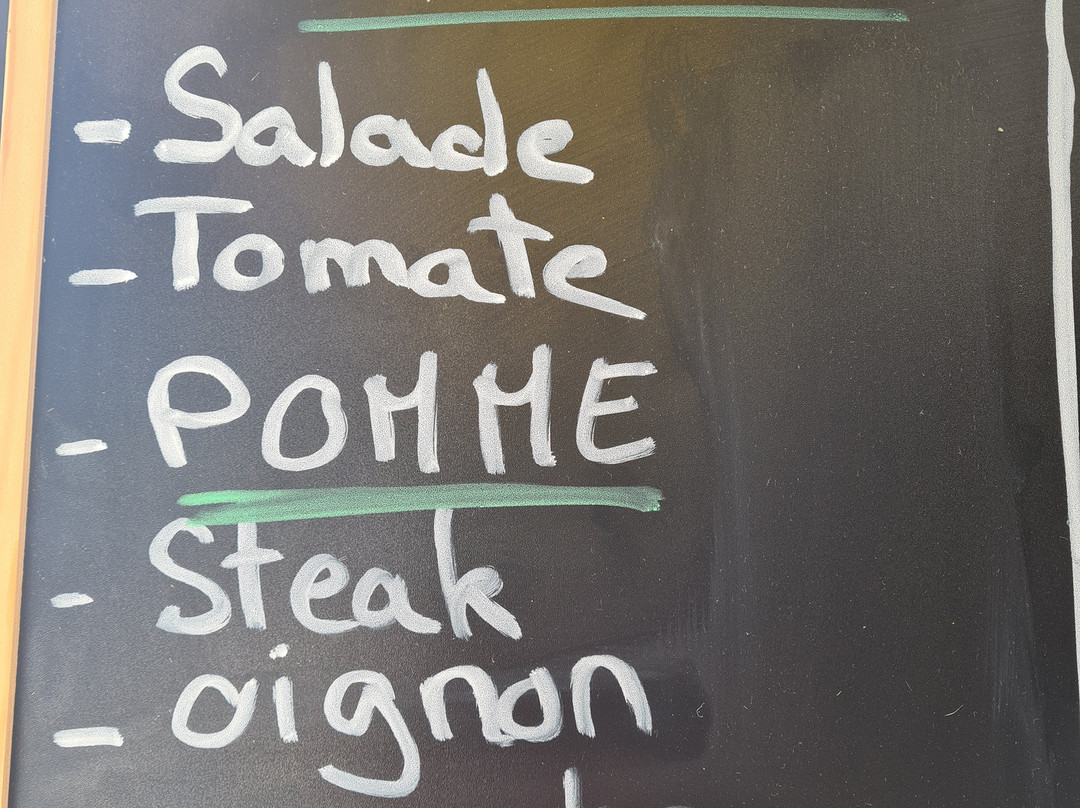 - Salade
- Tomate
- POMME
- Steak
- oignon